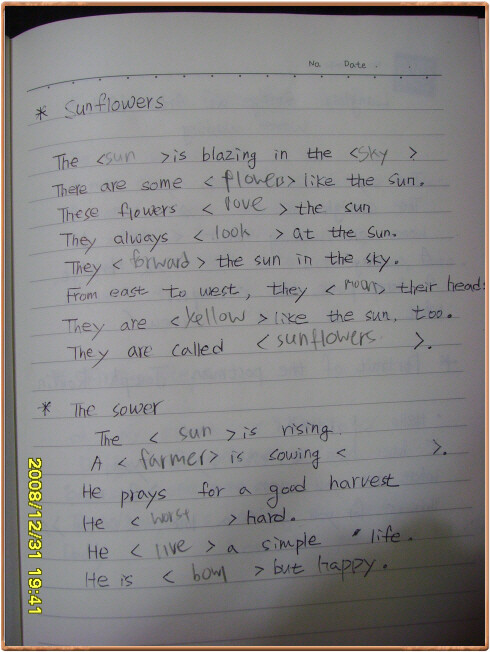 No. Date . .
* Sunflowers
The <sun> is blazing in the <sky>
There are some <flowers> like the sun.
These flowers <love> the sun
They always <look> at the sun.
They <forward> the sun in the sky.
From east to west, they < > their heads
They are <yellow> like the sun, too.
They are called <sunflowers>.
* The sower
The <sun> is rising
A <farmer> is sowing < >.
He prays for a good harvest
He <worst> hard.
He <live> a simple life.
He is < > but happy.
2008/12/31 19:41